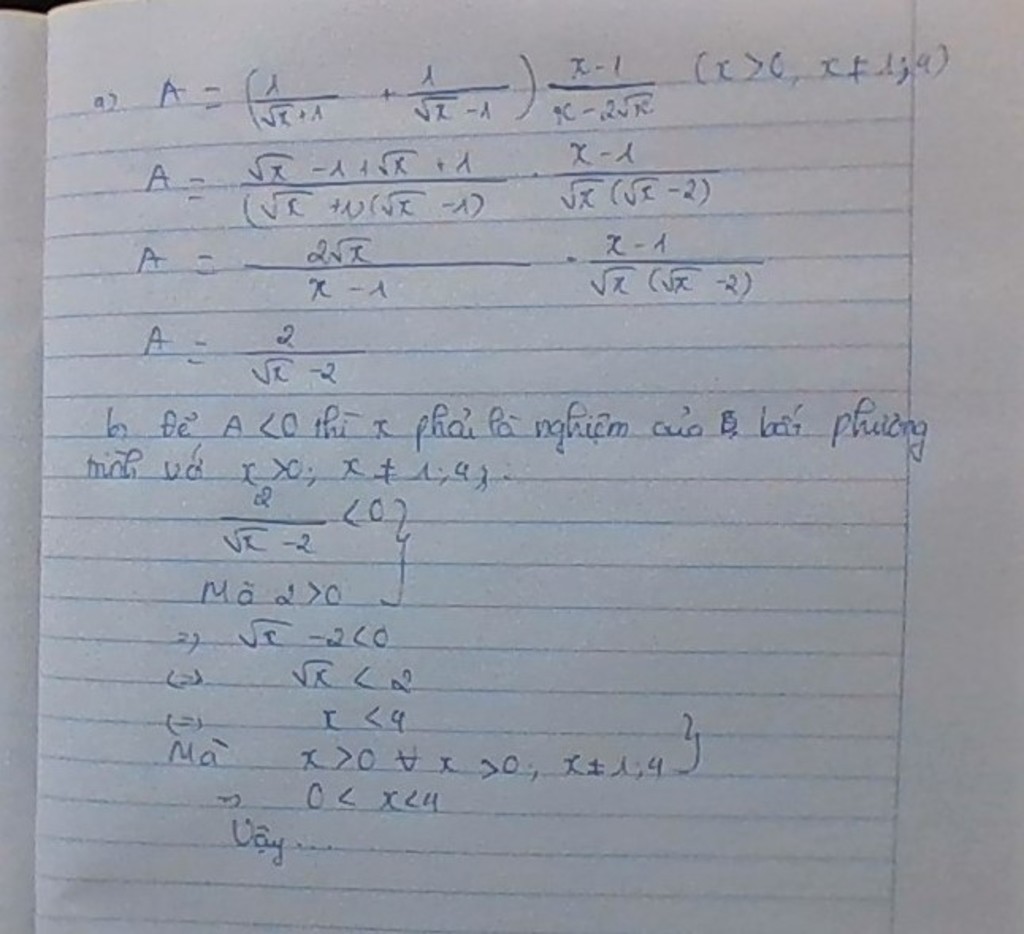 a) A = (1/(√x+1) + 1/(√x-1)) (x-1)/(x-2√x) (x>0, x≠1;4)
A = (√x-1+√x+1)/((√x+1)(√x-1)) . (x-1)/(√x(√x-2))
A = 2√x/(x-1) . (x-1)/(√x(√x-2))
A = 2/(√x-2)
b, Để A<0 thì x phải là nghiệm của bất phương
trình với x>0; x≠1;4
2/(√x-2) <0 }
Mà 2>0
=> √x-2<0
<=> √x<2
<=> x<4
Mà x>0 ∀ x>0; x≠1;4 }
=> 0<x<4
Vậy...